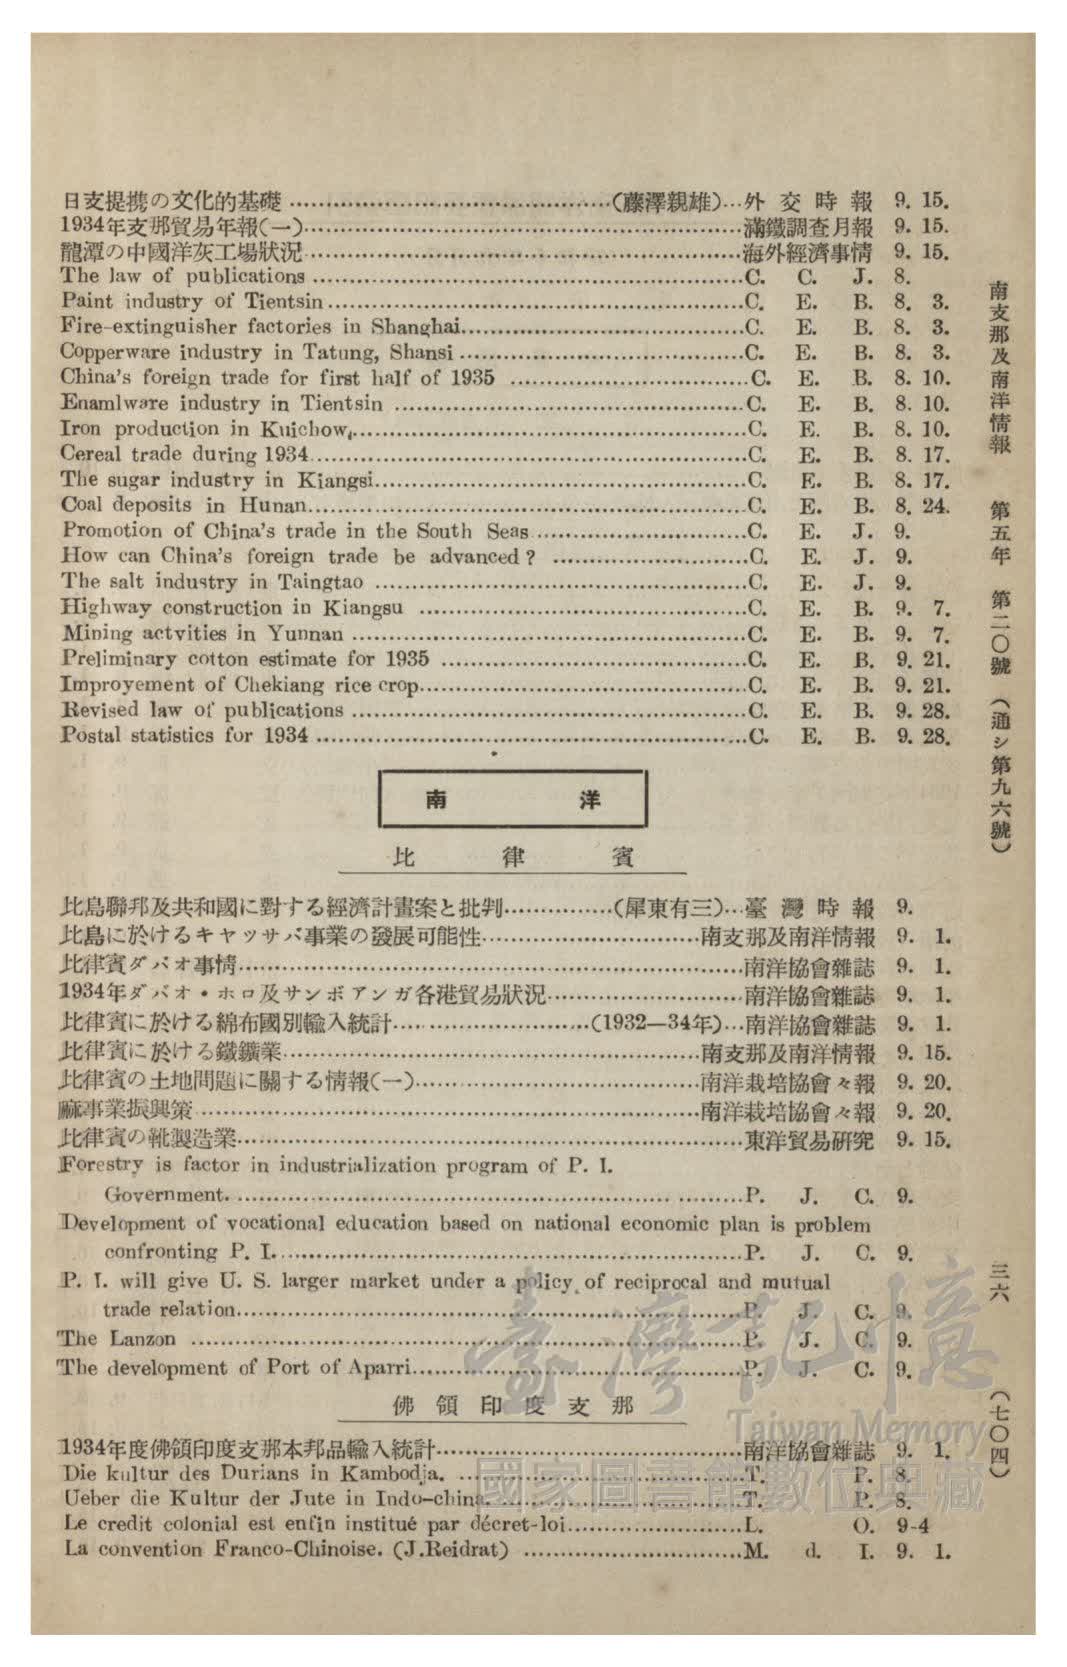 日支提携の文化的基礎……………………………………(藤澤親雄)…外交時報 9. 15.
1934年支那貿易年報(一)……………………………………滿鐵調査月報 9. 15.
龍潭の中國洋灰工場狀況……………………………………海外經濟事情 9. 15.
The law of publications……………………………………C. C. J. 8.
Paint industry of Tientsin……………………………………C. E. B. 8. 3.
Fire-extinguisher factories in Shanghai……………………………………C. E. B. 8. 3.
Copperware industry in Tatung, Shansi……………………………………C. E. B. 8. 3.
China's foreign trade for first half of 1935……………………………………C. E. B. 8. 10.
Enamlware industry in Tientsin……………………………………C. E. B. 8. 10.
Iron production in Kuichow,……………………………………C. E. B. 8. 10.
Cereal trade during 1934……………………………………C. E. B. 8. 17.
The sugar industry in Kiangsi……………………………………C. E. B. 8. 17.
Coal deposits in Hunan……………………………………C. E. B. 8. 24.
Promotion of China's trade in the South Seas……………………………………C. E. J. 9.
How can China's foreign trade be advanced?……………………………………C. E. J. 9.
The salt industry in Taingtao……………………………………C. E. J. 9.
Highway construction in Kiangsu……………………………………C. E. B. 9. 7.
Mining actvities in Yunnan……………………………………C. E. B. 9. 7.
Preliminary cotton estimate for 1935……………………………………C. E. B. 9. 21.
Improyement of Chekiang rice crop……………………………………C. E. B. 9. 21.
Revised law of publications……………………………………C. E. B. 9. 28.
Postal statistics for 1934……………………………………C. E. B. 9. 28.
南洋
比律賓
比島聯邦及共和國に對する經濟計畫案と批判……………(犀東有三)…臺灣時報 9.
比島に於けるキヤツサバ事業の發展可能性……………………………………南支那及南洋情報 9. 1.
比律賓ダバオ事情……………………………………南洋協會雜誌 9. 1.
1934年ダバオ・ホロ及サンボアンガ各港貿易狀況……………………………………南洋協會雜誌 9. 1.
比律賓に於ける綿布國別輸入統計……………………………………(1932—34年)…南洋協會雜誌 9. 1.
比律賓に於ける鐵鑛業……………………………………南支那及南洋情報 9. 15.
比律賓の土地問題に關する情報(一)……………………………………南洋栽培協會々報 9. 20.
麻事業振興策……………………………………南洋栽培協會々報 9. 20.
比律賓の靴製造業……………………………………東洋貿易研究 9. 15.
Forestry is factor in industrialization program of P. I.
Government.……………………………………P. J. C. 9.
Development of vocational education based on national economic plan is problem
confronting P. I.……………………………………P. J. C. 9.
P. I. will give U. S. larger market under a policy of reciprocal and mutual
trade relation……………………………………P. J. C. 9.
The Lanzon……………………………………P. J. C. 9.
The development of Port of Aparri……………………………………P. J. C. 9.
佛領印度支那
1934年度佛領印度支那本邦品輸入統計……………………………………南洋協會雜誌 9. 1.
Die kultur des Durians in Kambodja.……………………………………T. P. 8.
Ueber die Kultur der Jute in Indo-china.……………………………………T. P. 8.
Le credit colonial est enfin institué par décret-loi……………………………………L. O. 9-4
La convention Franco-Chinoise. (J.Reidrat)……………………………………M. d. I. 9. 1.
南支那及南洋情報 第五年 第二〇號 (通シ第九六號)
三六
(七〇四)
臺灣記憶
Taiwan Memory
國家圖書館數位典藏